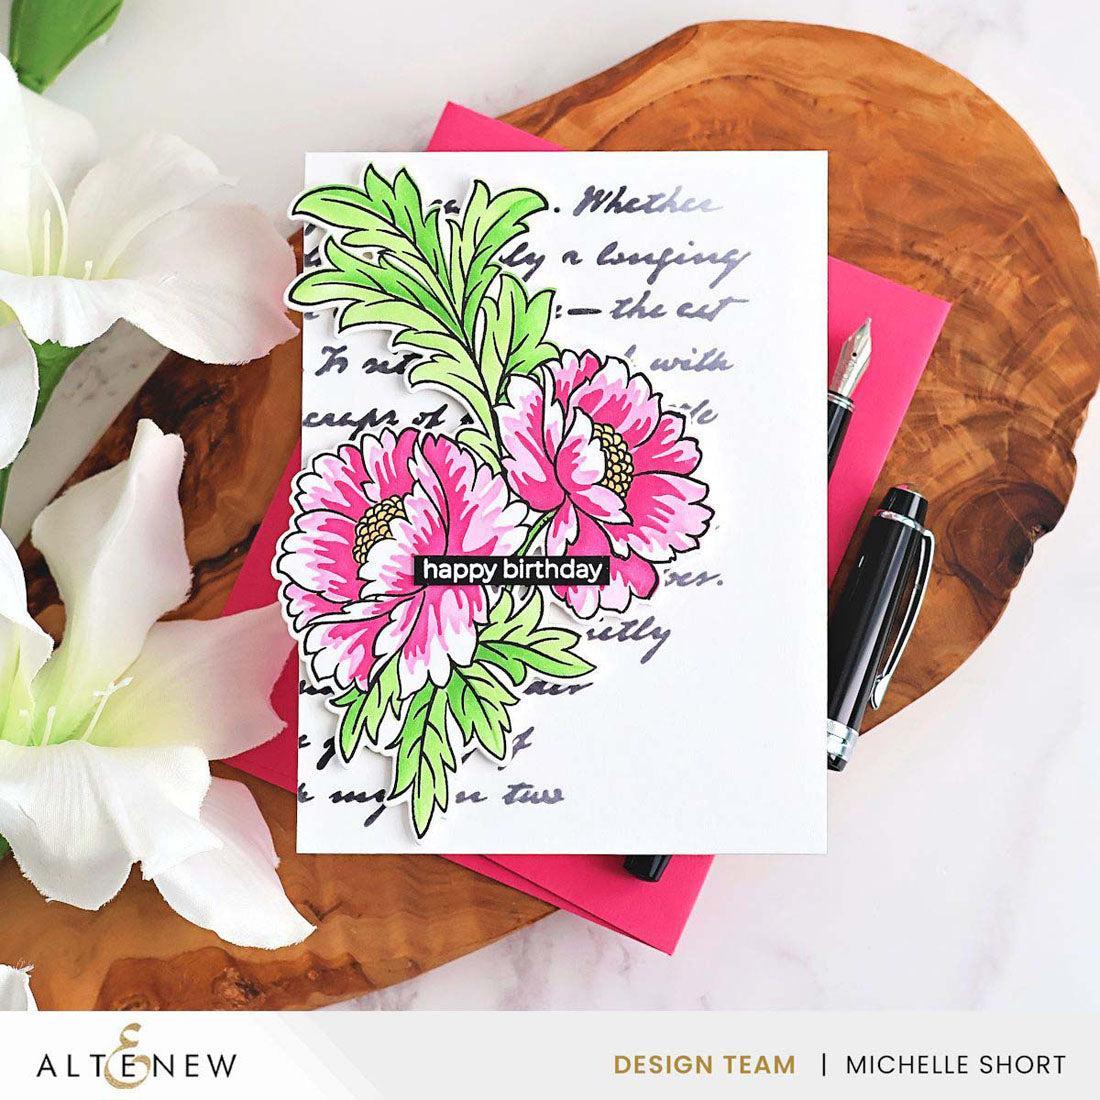 . Whether
ly a longing
— the act
To set with
scraps of
happy birthday
ietly
my two
ALTENEW
DESIGN TEAM | MICHELLE SHORT